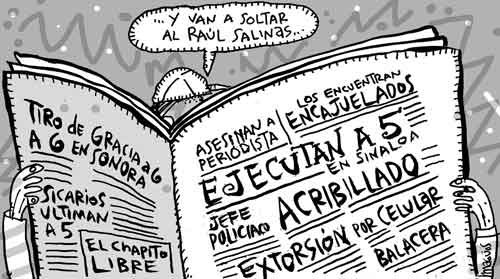 ...Y VAN A SOLTAR
AL RAÚL SALINAS...
TIRO DE GRACIA a 6
A 6 EN SONORA
SICARIOS
ULTIMAN
A 5
EL CHAPITO
LIBRE
ASESINAN A
PERIODISTA
LOS ENCUENTRAN
ENCAJUELADOS
EJECUTAN A 5
EN SINALOA
JEFE
POLICIACO
ACRIBILLADO
EXTORSIÓN POR CELULAR
BALACERA